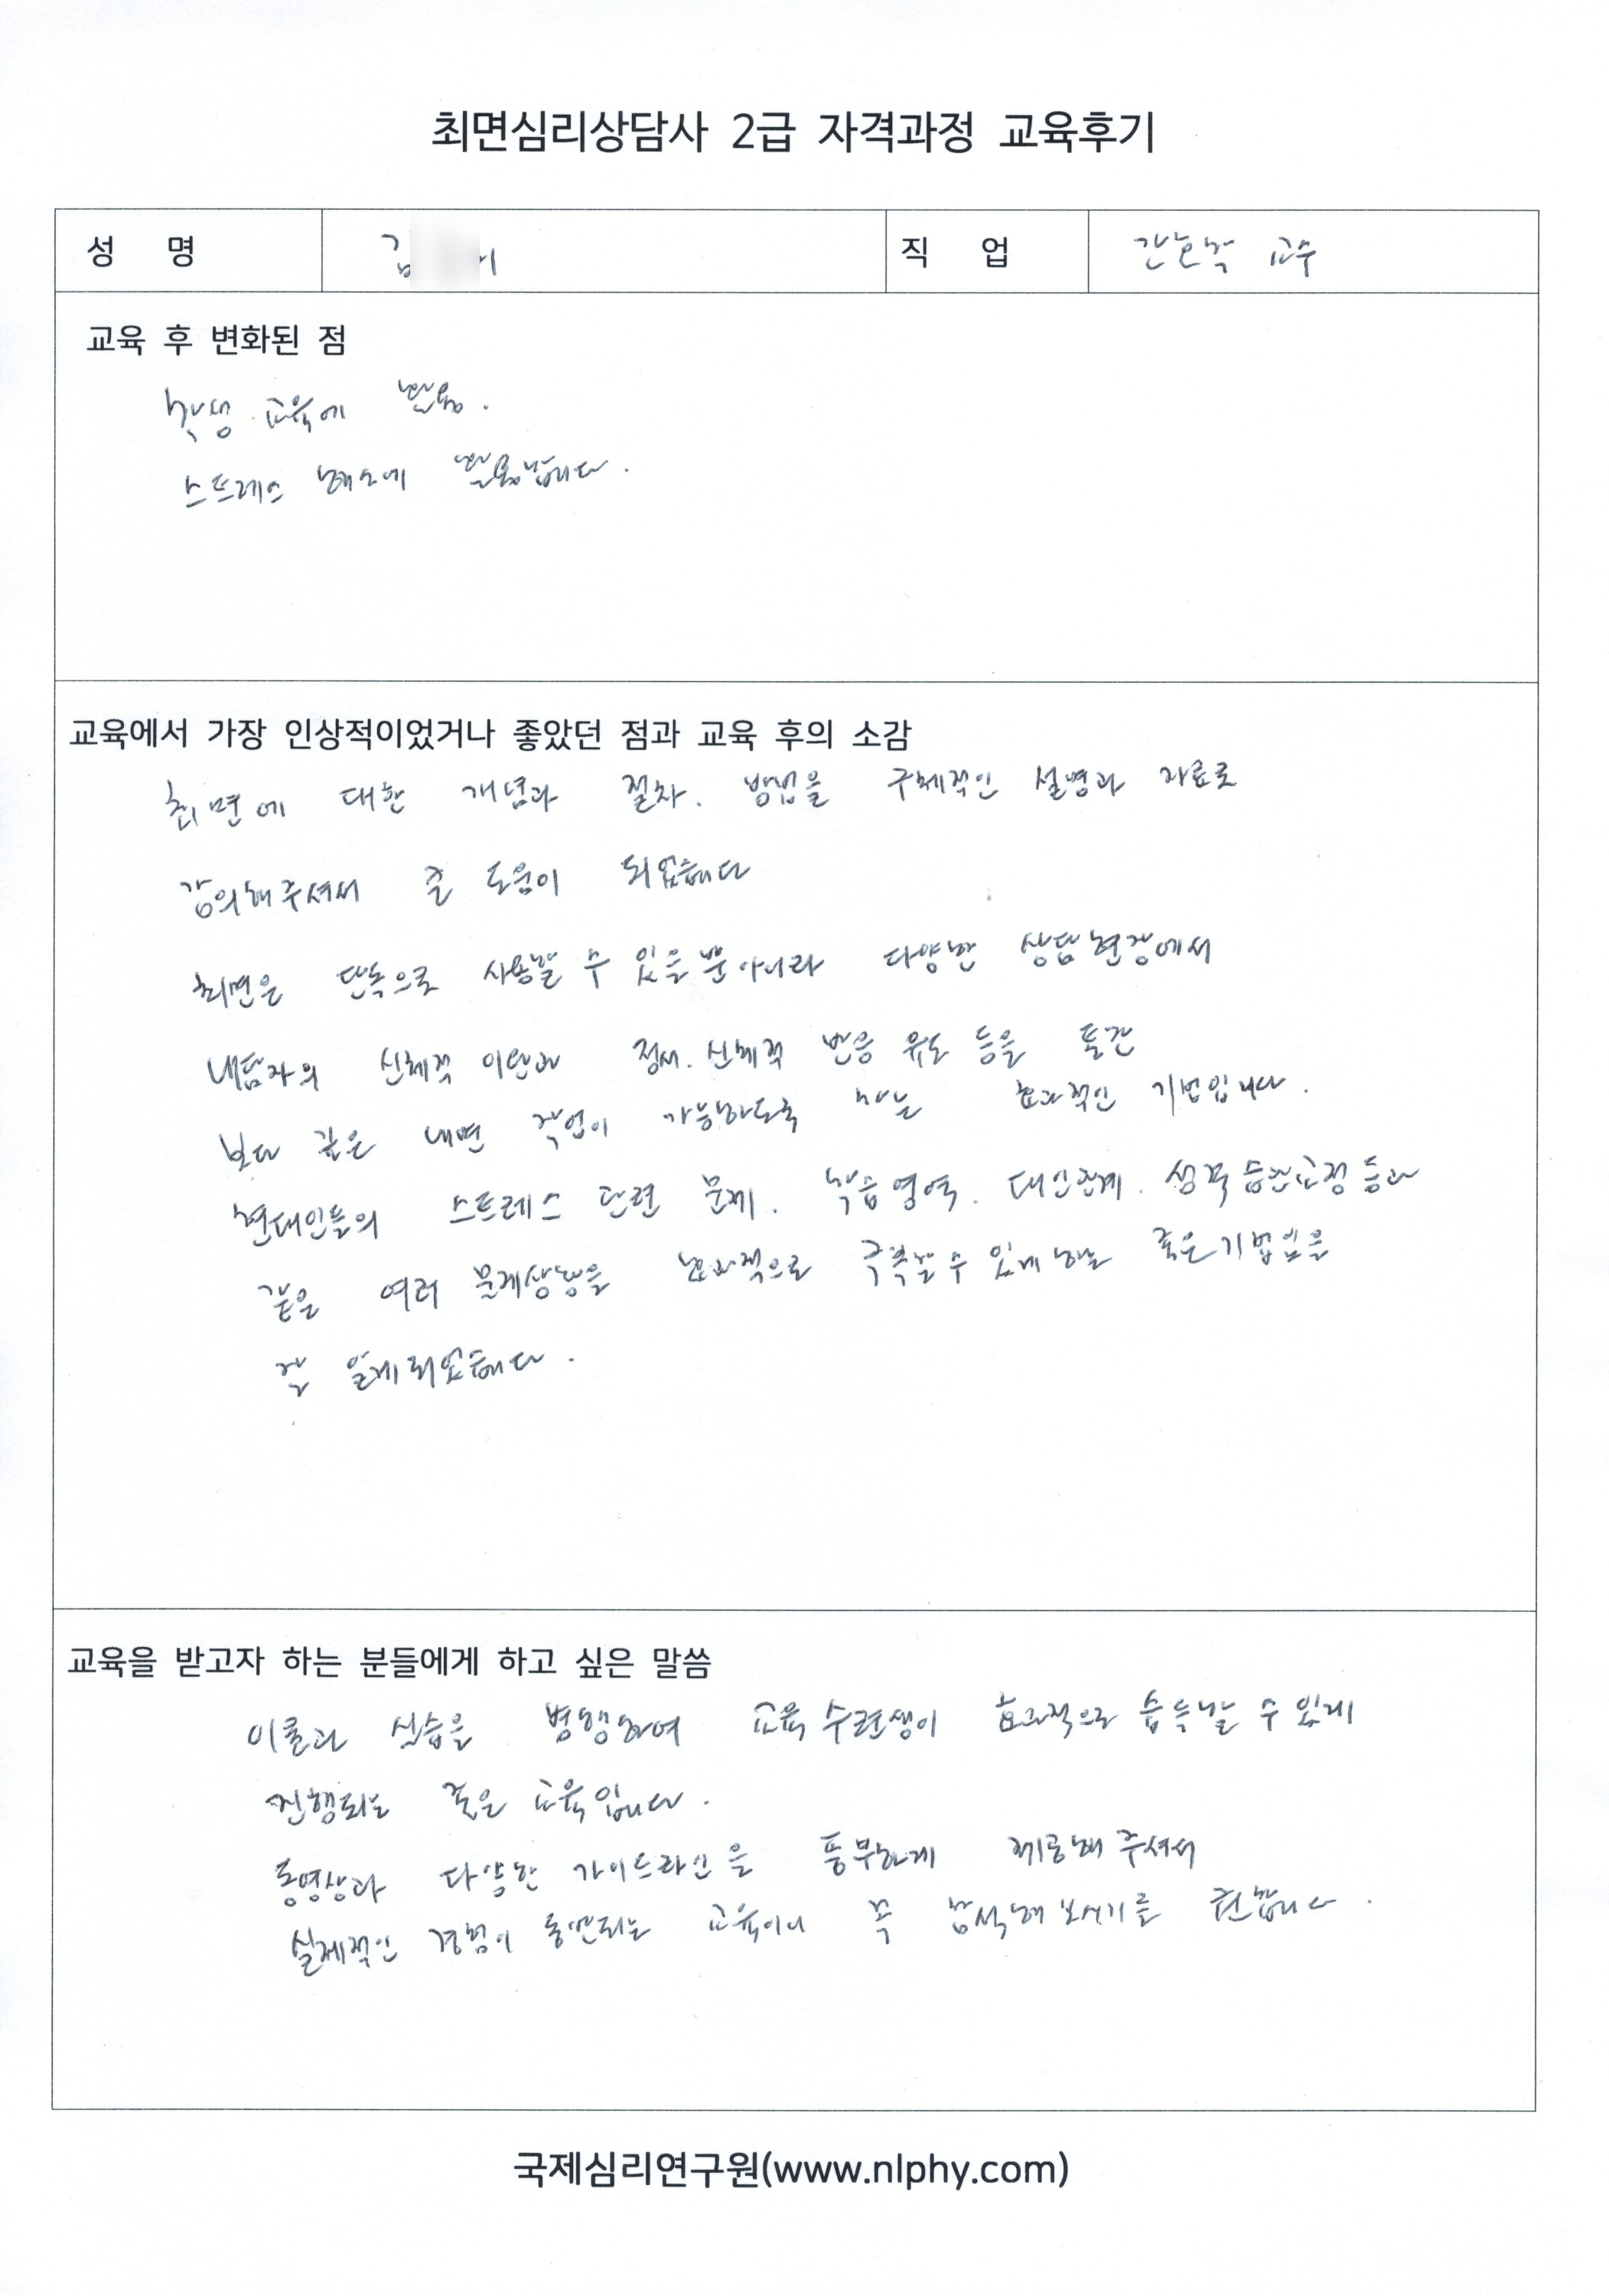 최면심리상담사 2급 자격과정 교육후기
성 명 김 직 업 간호학 교수
교육 후 변화된 점
학생 교육에 활용.
스트레스 해소에 활용합니다.
교육에서 가장 인상적이었거나 좋았던 점과 교육 후의 소감
최면에 대한 개념과 절차. 방법을 구체적인 설명과 자료로
강의해주셔서 큰 도움이 되었습니다
최면은 단독으로 사용할 수 있을 뿐 아니라 다양한 상담현장에서
내담자의 신체적 이완과 정서. 신체적 반응 유도 등을 통한
보다 깊은 내면 작업이 가능하도록 하는 효과적인 기법입니다.
현대인들의 스트레스 관련 문제. 학습영역. 대인관계. 성격 습관교정 등과
같은 여러 문제상황을 효과적으로 극복할 수 있게 하는 좋은 기법임을
잘 알게되었습니다.
교육을 받고자 하는 분들에게 하고 싶은 말씀
이론과 실습을 병행하여 교육 수련생이 효과적으로 습득할 수 있게
진행되는 좋은 교육입니다.
동영상과 다양한 가이드라인을 풍부하게 제공해 주셔서
실제적인 경험이 동반되는 교육이니 꼭 참석해 보시기를 권합니다.
국제심리연구원(www.nlphy.com)